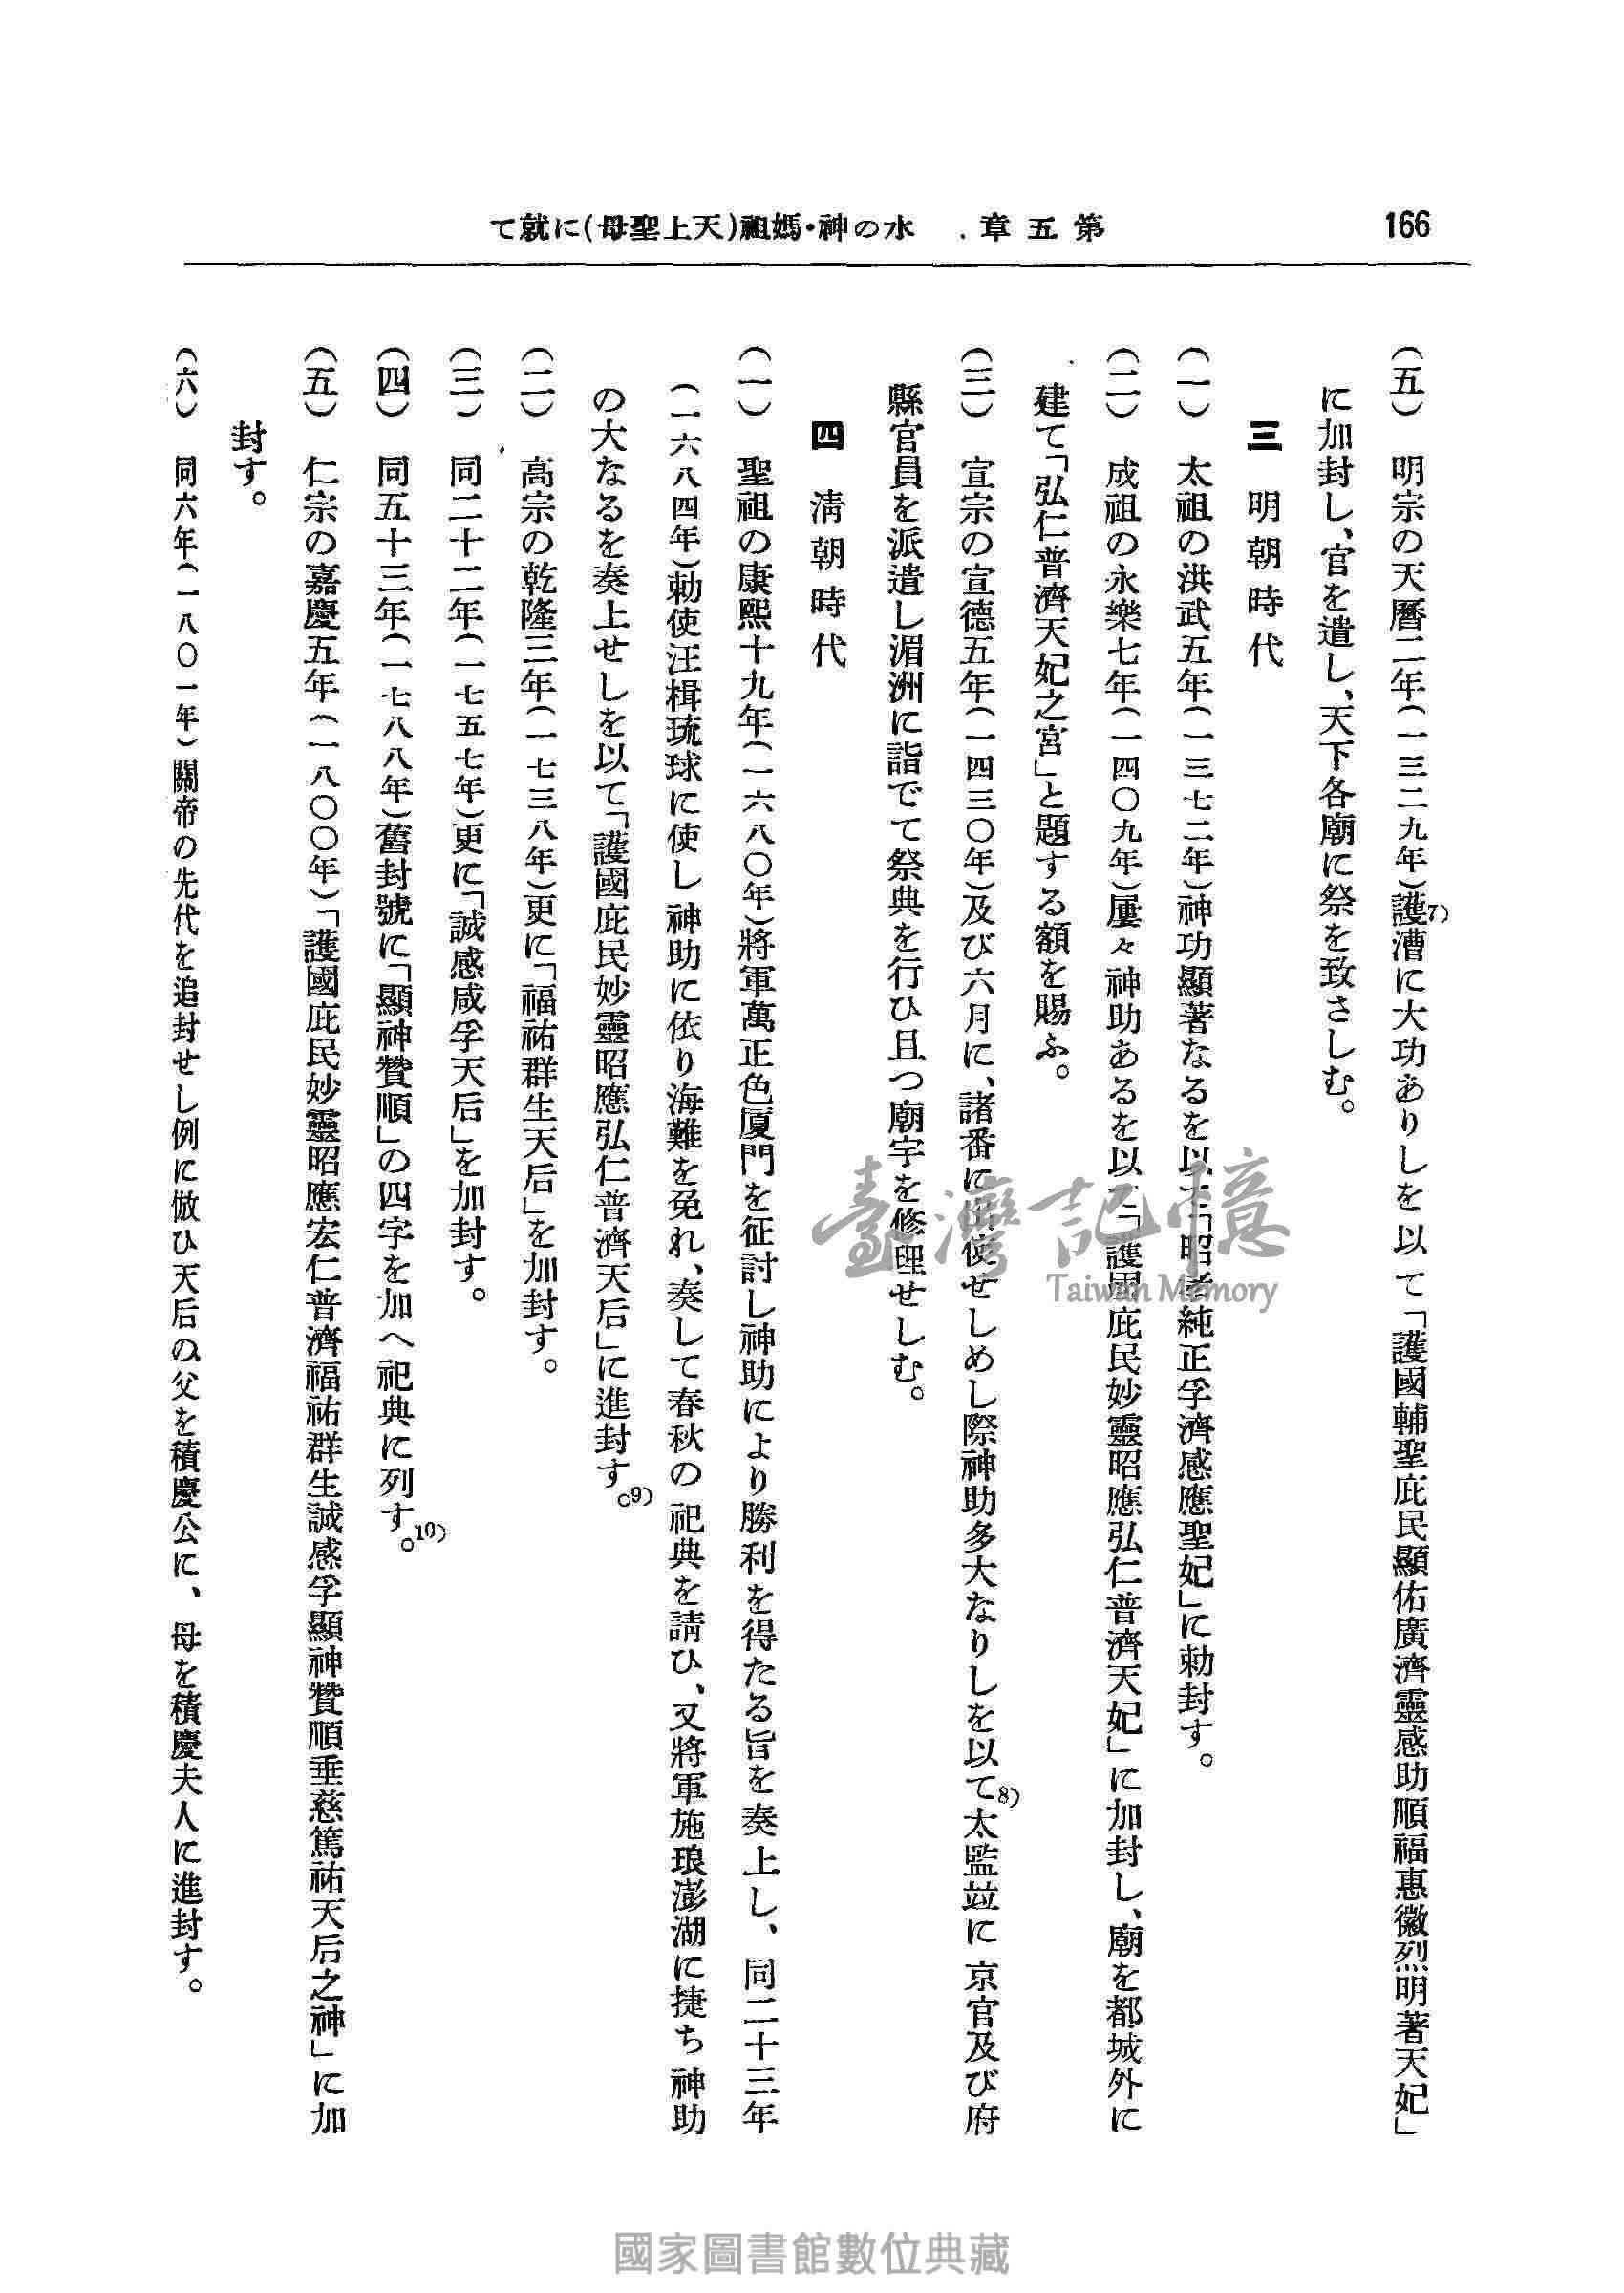 166
第五章　水の神・媽祖(天上聖母)に就て
(五)　明宗の天曆二年(一三二九年)護漕に大功ありしを以て「護國輔聖庇民顯佑廣濟靈感助順福惠徽烈明著天妃」7)
に加封し、官を遣し、天下各廟に祭を致さしむ。
三　明朝時代
(一)　太祖の洪武五年(一三七二年)神功顯著なるを以て「昭孝純正孚濟感應聖妃」に勅封す。
(二)　成祖の永樂七年(一四〇九年)屢々神助あるを以て「護國庇民妙靈昭應弘仁普濟天妃」に加封し、廟を都城外に
建て「弘仁普濟天妃之宮」と題する額を賜ふ。
(三)　宣宗の宣德五年(一四三〇年)及び六月に、諸番に出使せしめし際神助多大なりしを以て8)太監竝に京官及び府
縣官員を派遣し湄洲に詣でて祭典を行ひ且つ廟宇を修理せしむ。
四　淸朝時代
(一)　聖祖の康熙十九年(一六八〇年)將軍萬正色厦門を征討し神助により勝利を得たる旨を奏上し、同二十三年
(一六八四年)勅使汪楫琉球に使し神助に依り海難を免れ、奏して春秋の祀典を請ひ、又將軍施琅澎湖に捷ち神助
の大なるを奏上せしを以て「護國庇民妙靈昭應弘仁普濟天后」に進封す。9)
(二)　高宗の乾隆三年(一七三八年)更に「福祐群生天后」を加封す。
(三)　同二十二年(一七五七年)更に「誠感咸孚天后」を加封す。
(四)　同五十三年(一七八八年)舊封號に「顯神贊順」の四字を加へ祀典に列す。10)
(五)　仁宗の嘉慶五年(一八〇〇年)「護國庇民妙靈昭應宏仁普濟福祐群生誠感孚顯神贊順垂慈篤祐天后之神」に加
封す。
(六)　同六年(一八〇一年)關帝の先代を追封せし例に倣ひ天后の父を積慶公に、母を積慶夫人に進封す。
臺灣記憶
Taiwan Memory
國家圖書館數位典藏